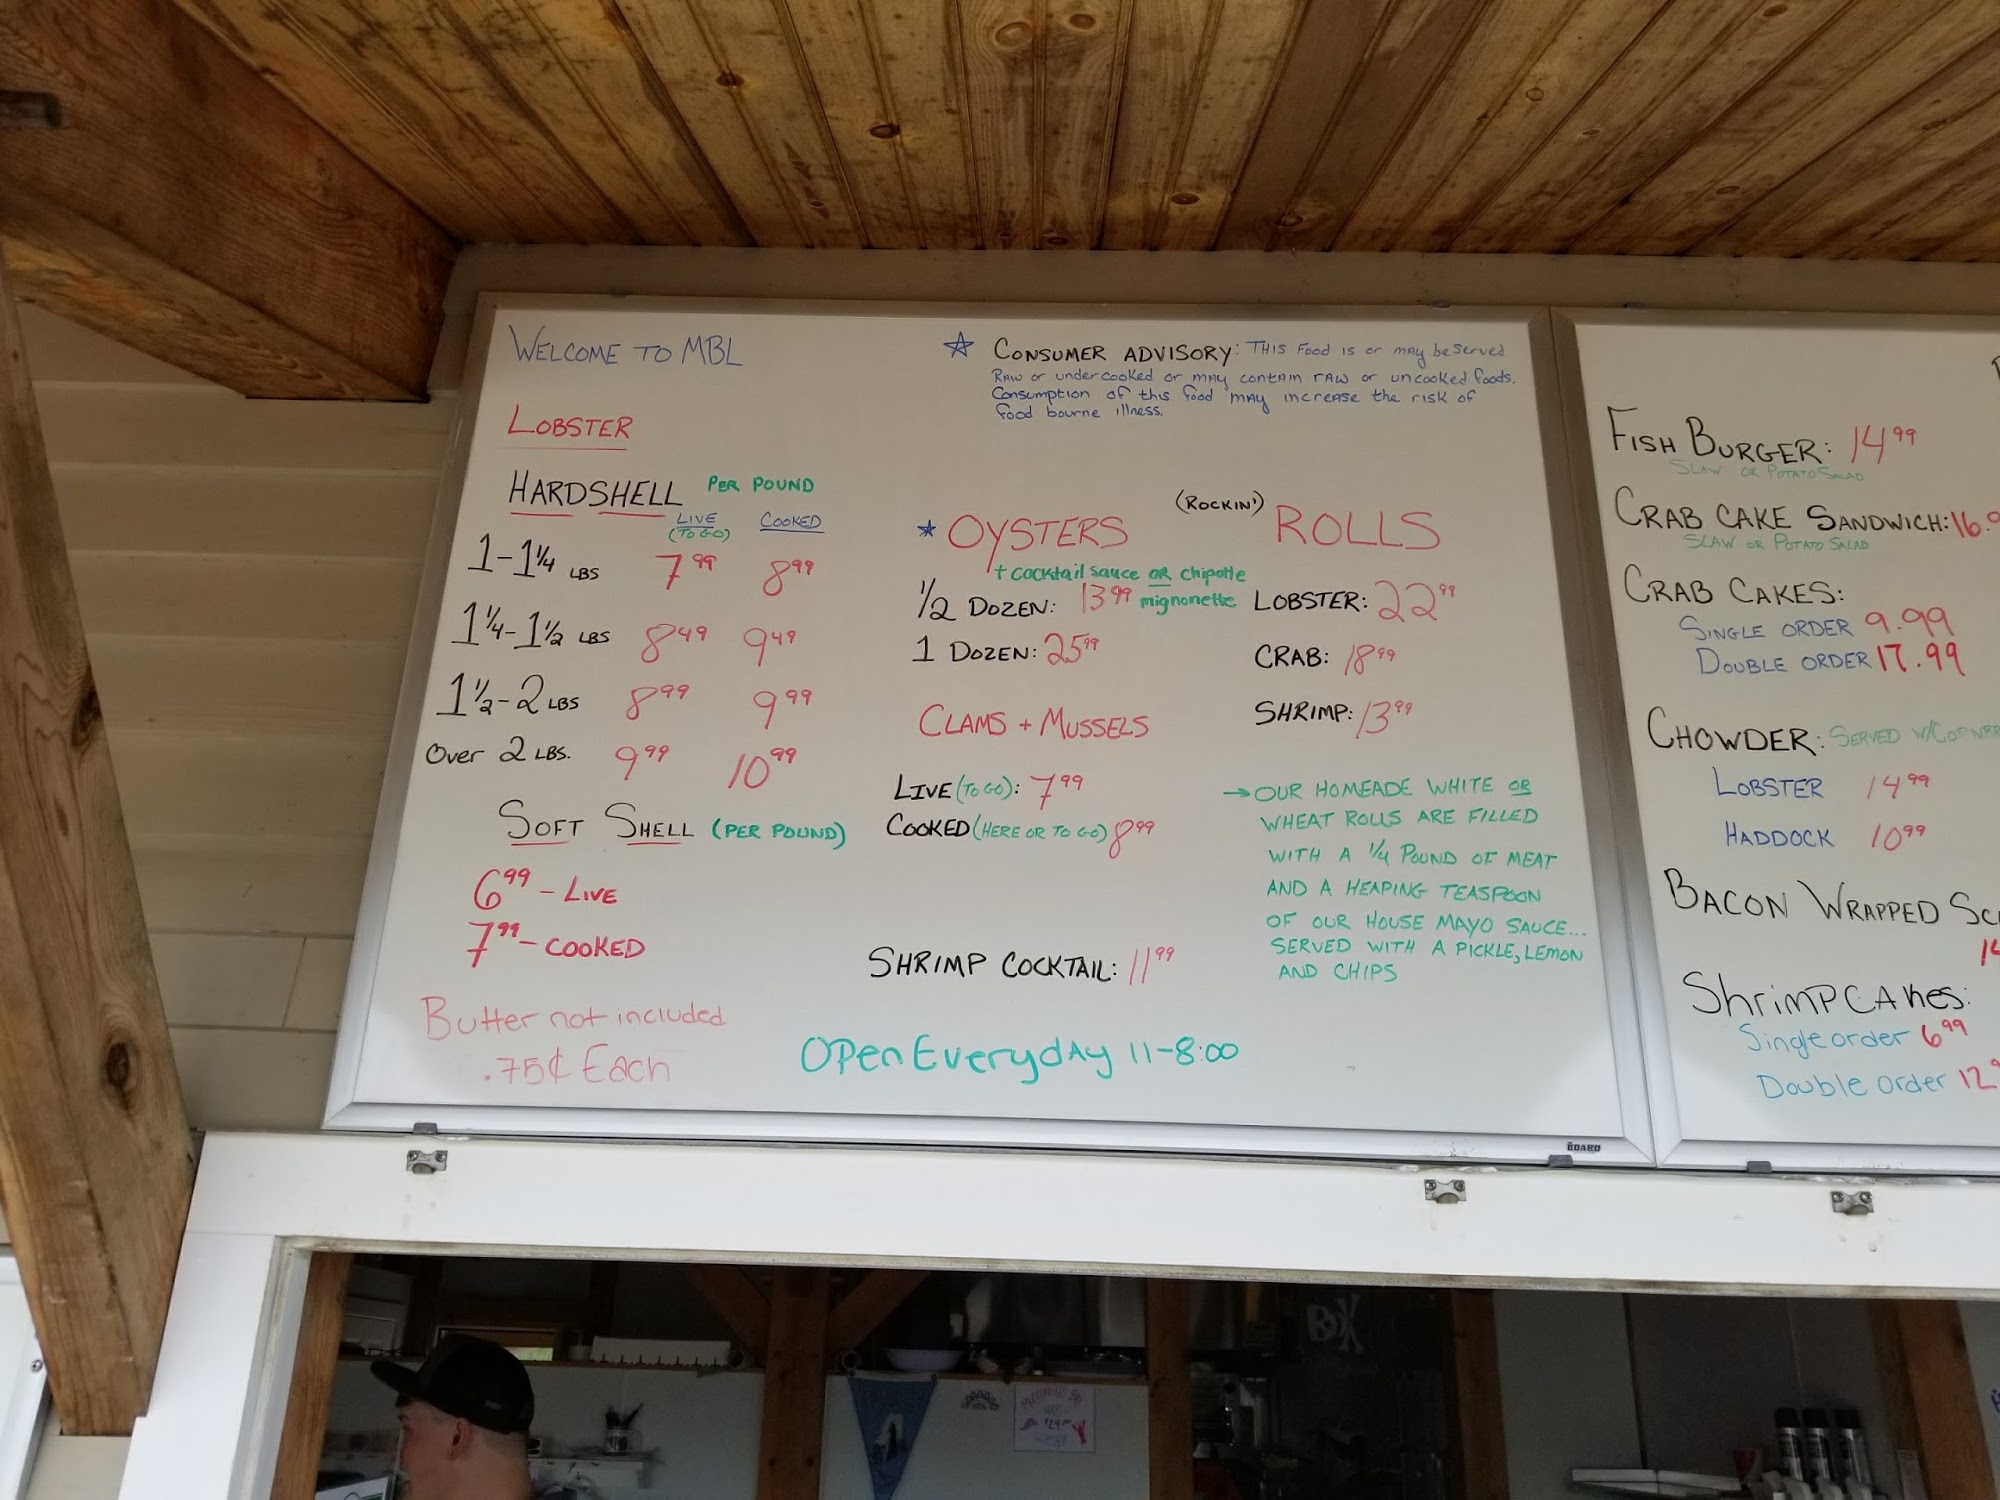 WELCOME TO MBL
LOBSTER
HARDSHELL PER POUND
LIVE (TO GO) COOKED
1-1 1/4 LBS 7.99 8.99
1 1/4-1 1/2 LBS 8.49 9.49
1 1/2-2 LBS 8.99 9.99
Over 2 LBS. 9.99 10.99
SOFT SHELL (PER POUND)
6.99 - LIVE
7.99 - COOKED
Butter not included
.75¢ Each
☆ CONSUMER ADVISORY: THIS Food is or may be Served
RAW or undercooked or may contain raw or uncooked foods.
Consumption of this food may increase the risk of
food bourne illness.
★ OYSTERS
+ cocktail sauce OR chipotle
mignonette
1/2 DOZEN: 13.99
1 DOZEN: 25.99
CLAMS + MUSSELS
LIVE (TO GO): 7.99
COOKED (HERE OR TO GO) 8.99
SHRIMP COCKTAIL: 11.99
OPen Everyday 11-8:00
(ROCKIN') ROLLS
LOBSTER: 22.99
CRAB: 18.99
SHRIMP: 13.99
→ OUR HOMEADE WHITE OR
WHEAT ROLLS ARE FILLED
WITH A 1/4 POUND OF MEAT
AND A HEAPING TEASPOON
OF OUR HOUSE MAYO SAUCE...
SERVED WITH A PICKLE, LEMON
AND CHIPS
BOARD
FISH BURGER: 14.99
SLAW OR POTATO SALAD
CRAB CAKE SANDWICH: 16.9
SLAW OR POTATO SALAD
CRAB CAKES:
SINGLE ORDER 9.99
DOUBLE ORDER 17.99
CHOWDER: SERVED W/CORNBR
LOBSTER 14.99
HADDOCK 10.99
BACON WRAPPED SC
14
ShrimP CAkes:
Single order 6.99
Double order 12.9